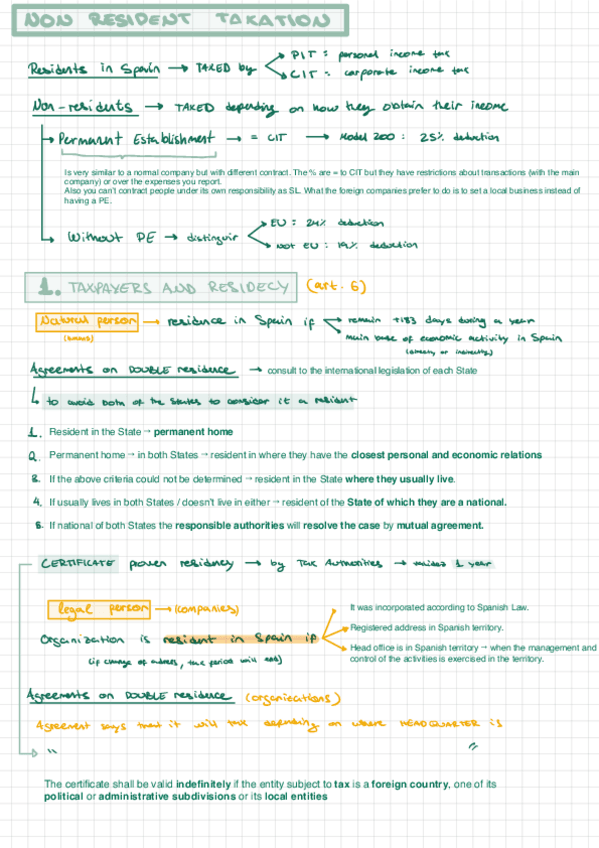 NON RESIDENT TAXATION
Residents in Spain → TAXED by
PIT : personal income tax
CIT : corporate income tax
Non-residents → TAXED depending on how they obtain their income
Permanent Establishment → = CIT → Model 200 : 25% deduction
Is very similar to a normal company but with different contract. The % are = to CIT but they have restrictions about transactions (with the main
company) or over the expenses you report.
Also you can't contract people under its own responsibility as SL. What the foreign companies prefer to do is to set a local business instead of
having a PE.
Without PE → distinguir
EU : 24% deduction
not EU : 19% deduction
1. TAXPAYERS AND RESIDECY (art. 6)
Natural person → residence in Spain if
remain +183 days during a year
main base of economic activity in Spain
(directly or indirectly)
Agreements on DOUBLE residence → consult to the international legislation of each State
to avoid both of the States to consider it a resident
1. Resident in the State → permanent home
2. Permanent home → in both States → resident in where they have the closest personal and economic relations
3. If the above criteria could not be determined → resident in the State where they usually live.
4. If usually lives in both States / doesn't live in either → resident of the State of which they are a national.
5. If national of both States the responsible authorities will resolve the case by mutual agreement.
CERTIFICATE proven residency → by Tax Authorities → 1 year
legal person → (companies)
Organization is resident in Spain if
(if change of address, tax period will end)
It was incorporated according to Spanish Law.
Registered address in Spanish territory.
Head office is in Spanish territory → when the management and
control of the activities is exercised in the territory.
Agreements on DOUBLE residence (organizations)
Agreement says that it will tax depending on where HEADQUARTER is
" "
The certificate shall be valid indefinitely if the entity subject to tax is a foreign country, one of its
political or administrative subdivisions or its local entities